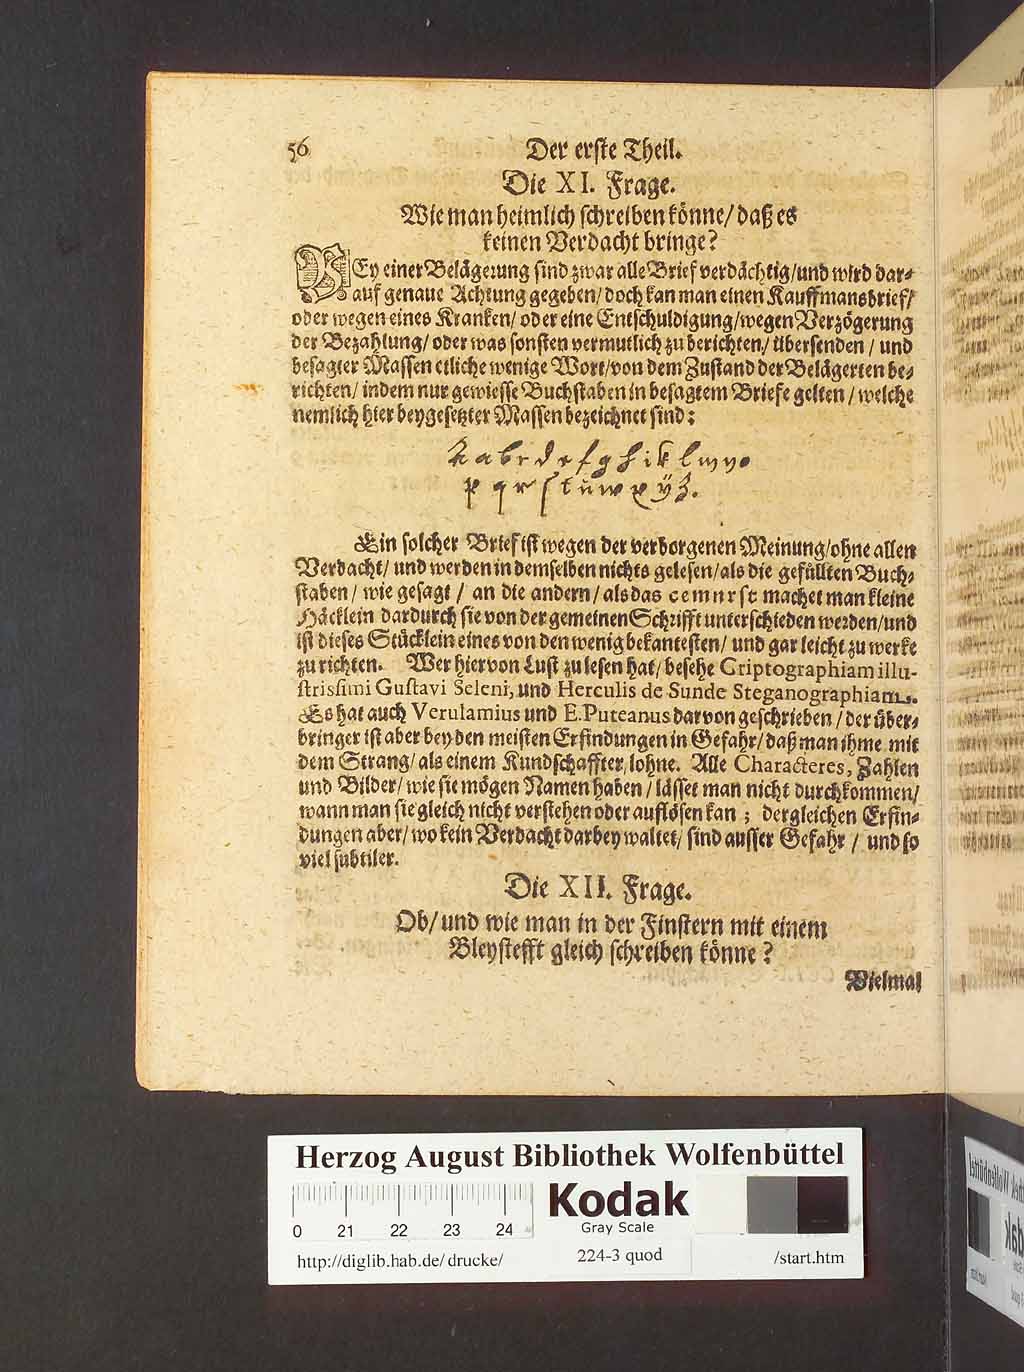 56 Der erste Theil.
Die XI. Frage.
Wie man heimlich schreiben könne/ daß es
keinen Verdacht bringe?
BEy einer Belägerung sind zwar alle Brief verdächtig/ und wird dar-
auf genaue Achtung gegeben/ doch kan man einen Kauffmansbrief/
oder wegen eines Kranken/ oder eine Entschuldigung/ wegen Verzögerung
der Bezahlung/ oder was sonsten vermutlich zu berichten/ übersenden / und
besagter Massen etliche wenige Wort/ von dem Zustand der Belägerten be-
richten/ indem nur gewiesse Buchstaben in besagtem Briefe gelten / welche
nemlich hier beygesetzter Massen bezeichnet sind:
a b c d e f g h i k l m n o
p q r s t u w x ÿ z.
Ein solcher Brief ist wegen der verborgenen Meinung/ ohne allen
Verdacht/ und werden in demselben nichts gelesen/ als die gefüllten Buch-
staben / wie gesagt / an die andern / als das c e m n r s t machet man kleine
Häcklein dardurch sie von der gemeinen Schrifft unterschieden werden/ und
ist dieses Stücklein eines von den wenig bekantesten/ und gar leicht zu werke
zu richten. Wer hiervon Lust zu lesen hat/ besehe Criptographiam illu-
strissimi Gustavi Seleni, und Herculis de Sunde Steganographiam.
Es hat auch Verulamius und E. Puteanus darvon geschrieben / der über-
bringer ist aber bey den meisten Erfindungen in Gefahr/ daß man ihme mit
dem Strang/ als einem Kundschaffter/ lohne. Alle Characteres, Zahlen
und Bilder/ wie sie mögen Namen haben / lässet man nicht durchkommen/
wann man sie gleich nicht verstehen oder auflösen kan ; dergleichen Erfin-
dungen aber/ wo kein Verdacht darbey waltet/ sind ausser Gefahr / und so
viel subtiler.
Die XII. Frage.
Ob/ und wie man in der Finstern mit einem
Bleystefft gleich schreiben könne?
Vielmal
Herzog August Bibliothek Wolfenbüttel
Kodak
Gray Scale
0 21 22 23 24
http://diglib.hab.de/drucke/ 224-3 quod /start.htm